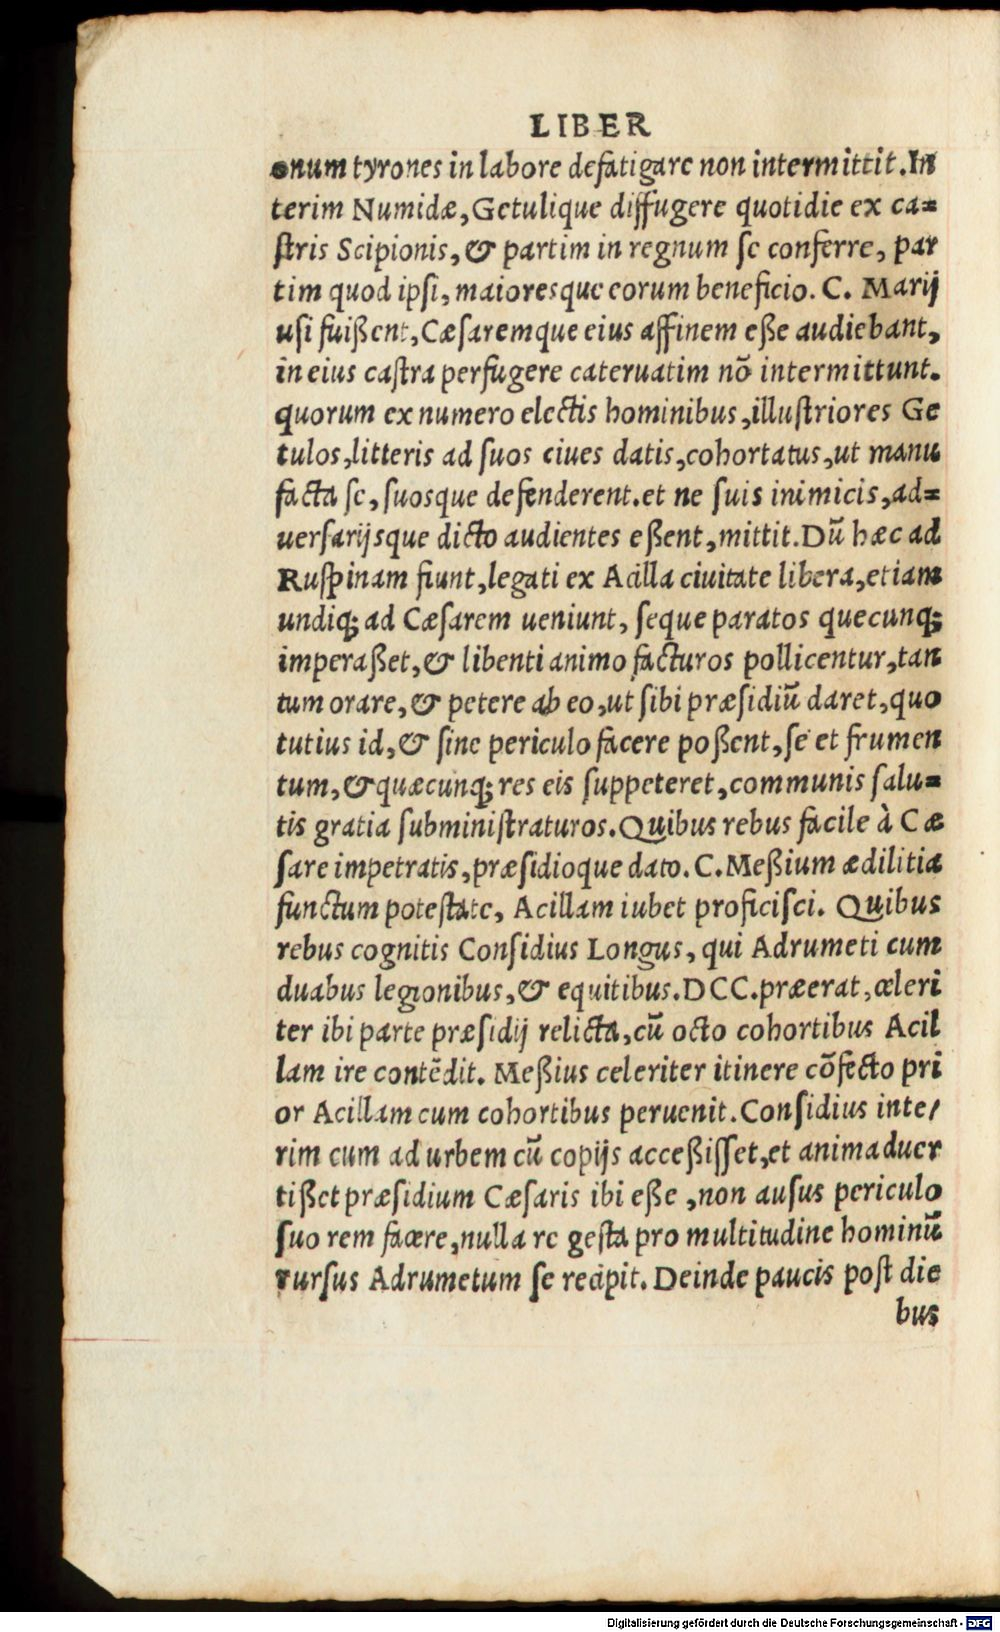 LIBER
onum tyrones in labore defatigare non intermittit. In
terim Numidæ, Getulique diffugere quotidie ex ca=
ſtris Scipionis, & partim in regnum ſe conferre, par
tim quod ipſi, maioresque eorum beneficio. C. Marij
uſi fuißent, Cæſaremque eius affinem eße audiebant,
in eius caſtra perfugere cateruatim nō intermittunt.
quorum ex numero electis hominibus, illuſtriores Ge
tulos, litteris ad ſuos ciues datis, cohortatus, ut manu
facta ſe, ſuosque defenderent. et ne ſuis inimicis, ad=
uerſarijsque dicto audientes eßent, mittit. Dū hæc ad
Ruſpinam fiunt, legati ex Acilla ciuitate libera, etiam
undiq; ad Cæſarem ueniunt, ſeque paratos quecunq;
imperaßet, & libenti animo facturos pollicentur, tan
tum orare, & petere ab eo, ut ſibi præſidiū daret, quo
tutius id, & ſine periculo facere poßent, ſe et frumen
tum, & quæcunq; res eis ſuppeteret, communis ſalu=
tis gratia ſubminiſtraturos. Quibus rebus facile à Cæ
ſare impetratis, præſidioque dato. C. Meßium ædilitia
functum poteſtate, Acillam iubet proficiſci. Quibus
rebus cognitis Conſidius Longus, qui Adrumeti cum
duabus legionibus, & equitibus. DCC. præerat, celeri
ter ibi parte præſidij relicta, cū octo cohortibus Acil
lam ire contēdit. Meßius celeriter itinere cōfecto pri
or Acillam cum cohortibus peruenit. Conſidius inte/
rim cum ad urbem cū copijs acceßiſſet, et animaduer
tißet præſidium Cæſaris ibi eße, non auſus periculo
ſuo rem facere, nulla re geſta pro multitudine hominū
rurſus Adrumetum ſe recipit. Deinde paucis poſt die
bus
Digitalisierung gefördert durch die Deutsche Forschungsgemeinschaft - DFG